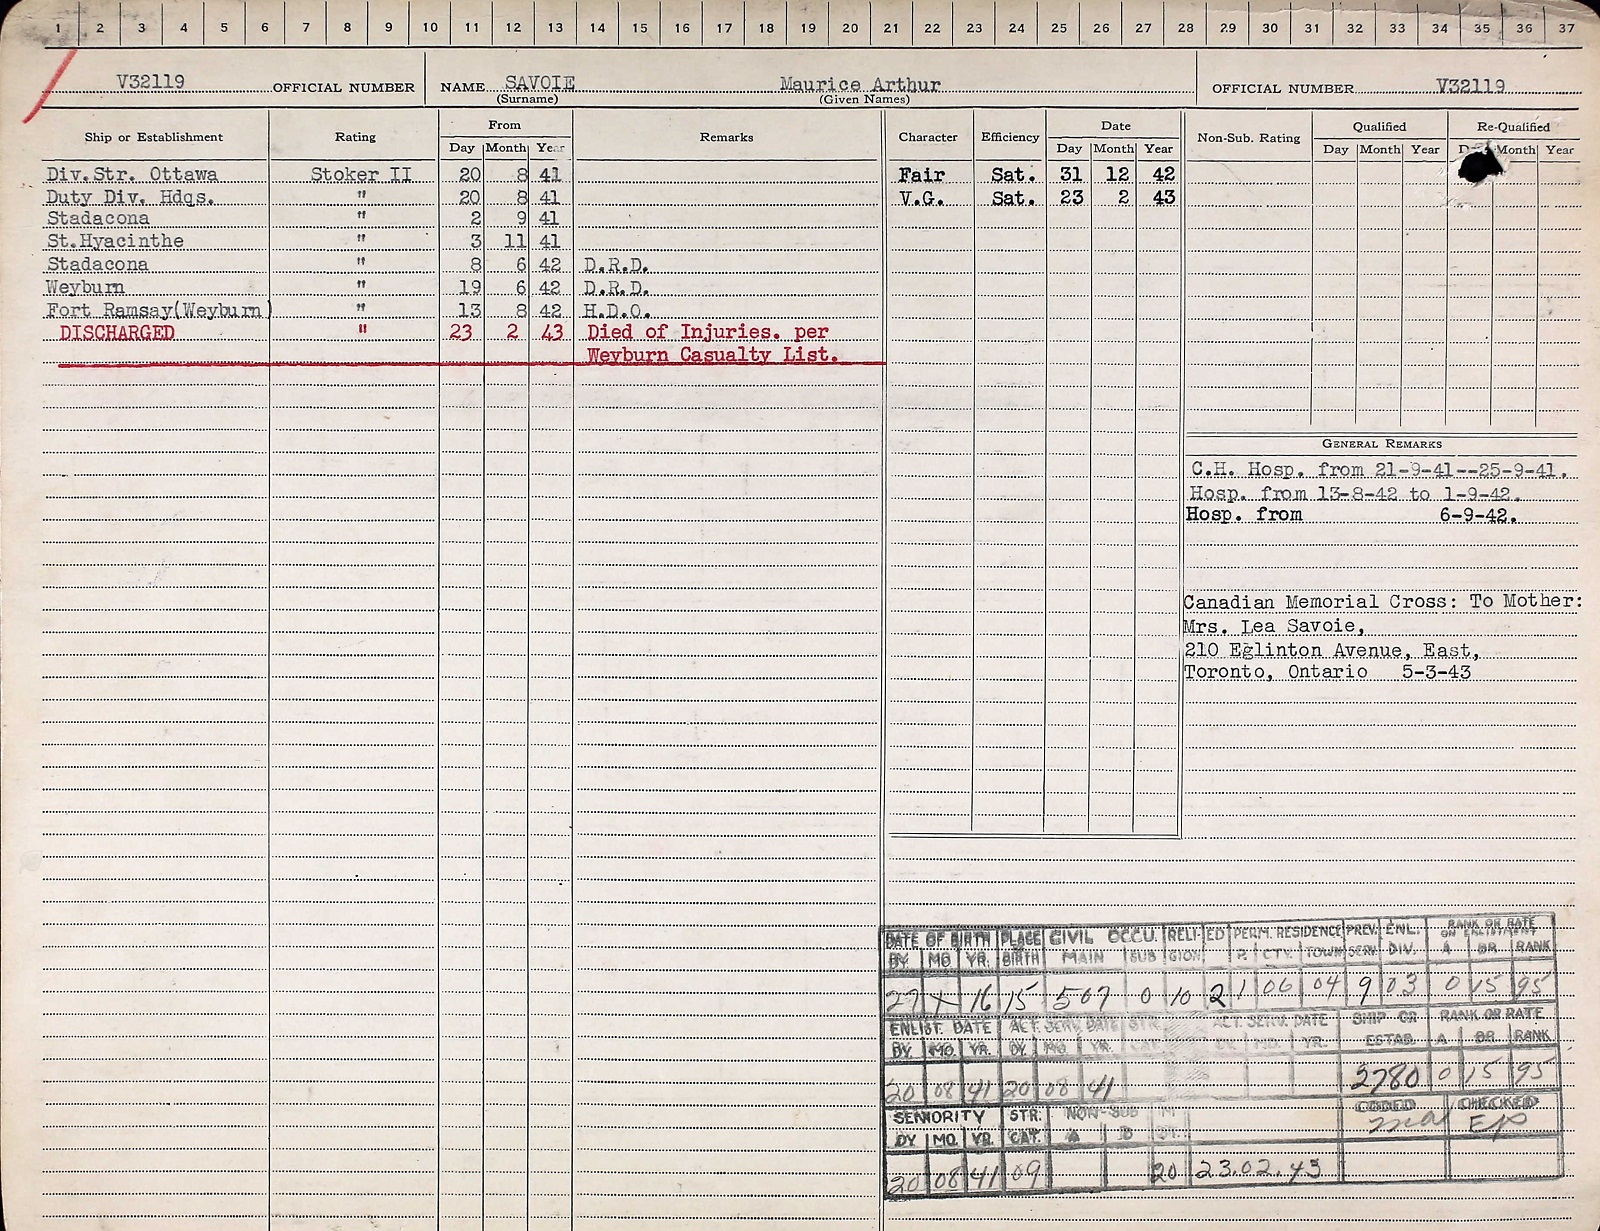 1 2 3 4 5 6 7 8 9 10 11 12 13 14 15 16 17 18 19 20 21 22 23 24 25 26 27 28 29 30 31 32 33 34 35 36 37
V32119 OFFICIAL NUMBER NAME SAVOIE Maurice Arthur OFFICIAL NUMBER V32119
(Surname) (Given Names)
Ship or Establishment Rating From Remarks Character Efficiency Date Non-Sub. Rating Qualified Re-Qualified
Day Month Year Day Month Year Day Month Year Month Year
Div.Str. Ottawa Stoker II 20 8 41 Fair Sat. 31 12 42
Duty Div. Hdqs. " 20 8 41 V.G. Sat. 23 2 43
Stadacona " 2 9 41
St.Hyacinthe " 3 11 41
Stadacona " 8 6 42 D.R.D.
Weyburn " 19 6 42 D.R.D.
Fort Ramsay(Weyburn) " 13 8 42 H.D.O.
DISCHARGED " 23 2 43 Died of Injuries. per
Weyburn Casualty List.
GENERAL REMARKS
C.H. Hosp. from 21-9-41--25-9-41.
Hosp. from 13-8-42 to 1-9-42.
Hosp. from 6-9-42.
Canadian Memorial Cross: To Mother:
Mrs. Lea Savoie,
210 Eglinton Avenue, East,
Toronto, Ontario 5-3-43
DATE OF BIRTH PLACE CIVIL OCCU. RELI- ED PERM. RESIDENCE PREV. ENL. RANK OR RATE ON ENLISTMENT
DY. MO YR. BIRTH MAIN SUB GION P. CTY. TOWN SERV. DIV. A BR. RANK
27 X 16 15 507 0 10 2 1 06 04 9 03 0 15 95
ENLIST. DATE ACT. SERV. DATE STR. ACT. SERV. DATE SHIP OR RANK OR RATE
DY. MO. YR. DY. MO. YR. CAT. DY. MO. YR. ESTAB. A BR. RANK
20 08 41 20 08 41 2780 0 15 95
SENIORITY STR. NON-SUB CODED CHECKED
DY MO. YR. CAT. A B
20 08 41 09 20 23.02.43